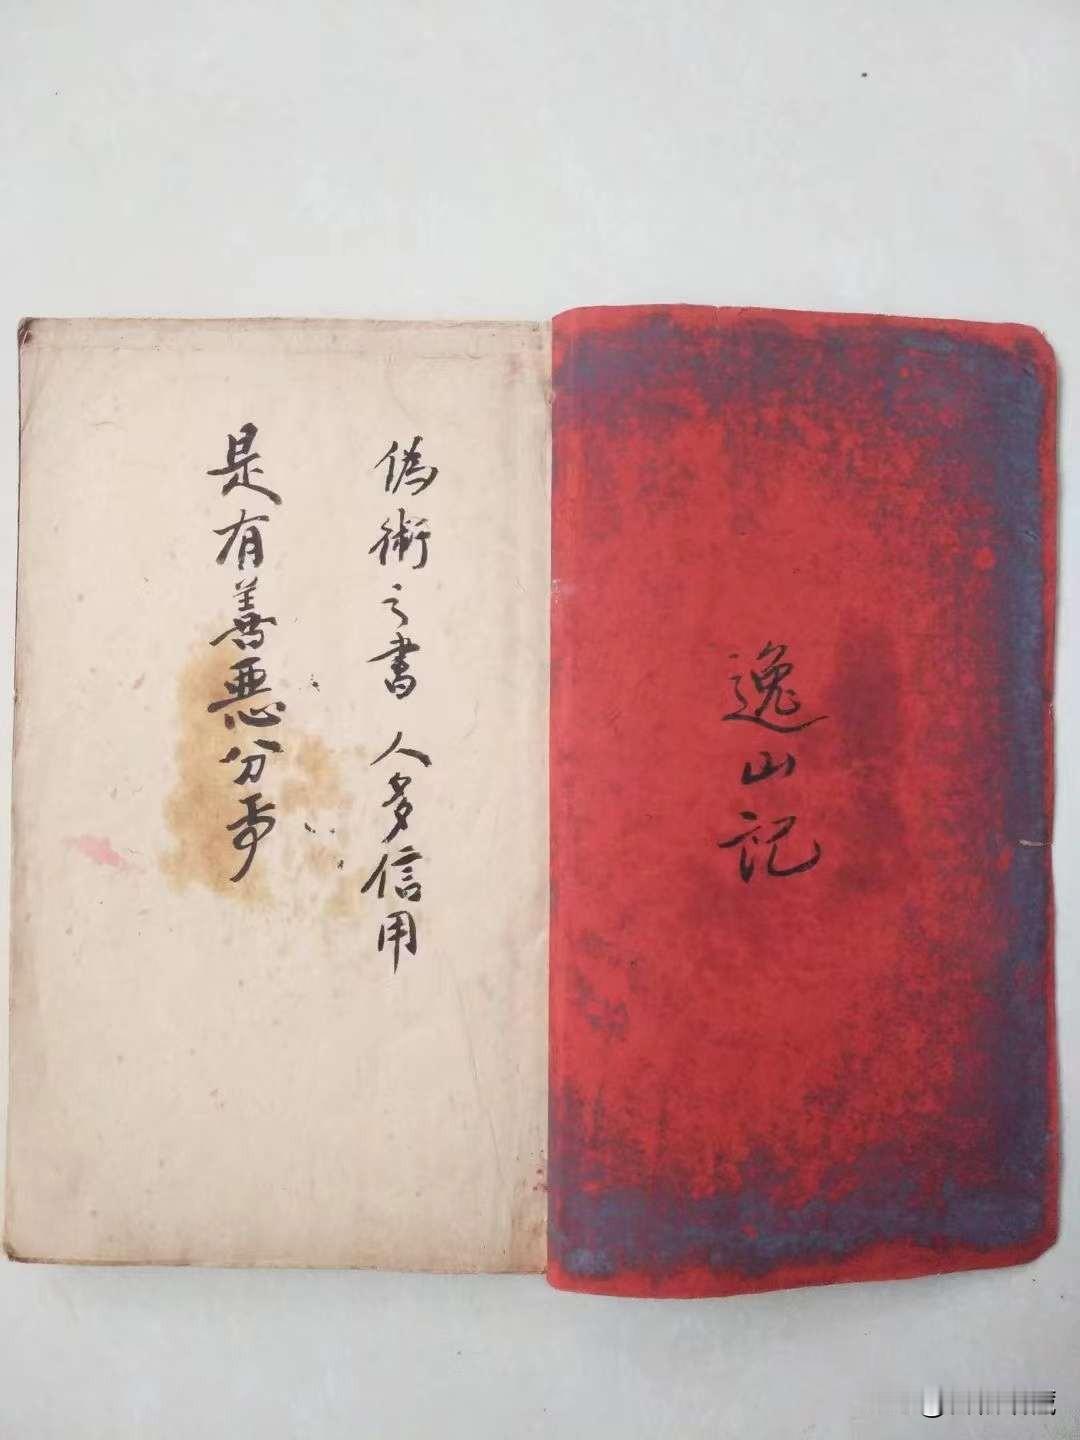 逸山記
偽術之書 人多信用
是有善惡分乎